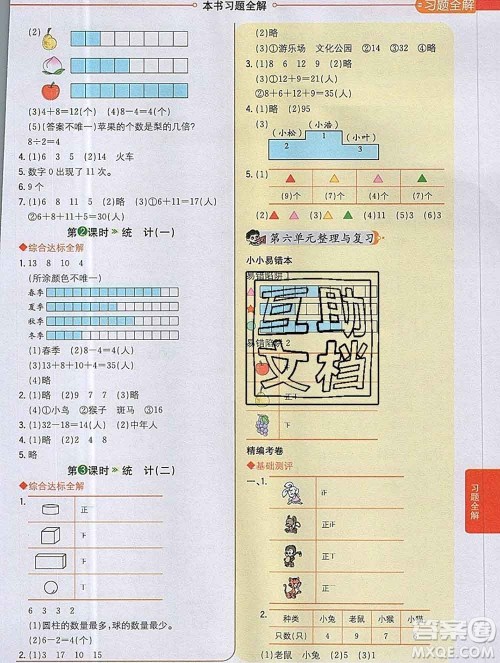 本书习题全解
习题全解
(2)
(3)4+8=12(个) (4)8-4=4(个)
(5)(答案不唯一)苹果的个数是梨的几倍?
8÷2=4
4.(1)6 3 5 (2)14 火车
5.数字0出现了11次。
6.9个
7.(1)6 8 3 5 (3)6+11=17(人)
②6+8+11+5=30(人)
第2课时 统 计(一)
综合达标全解
1.13 8 10 4
(所涂颜色不唯一)
春季
夏季
秋季
冬季
(1)春季 (2)8-4=4(人)
(3)13+8+10+4=35(人)
2.(1)略 (2)9 7 7 (3)略
(4)①小鸟 ②猴子 斑马 ③16
3.(1)32-18=14(人) (2)中年人
4.略
5.略
第3课时 统 计(二)
综合达标全解
1.
正
6 3 3 2
(1)圆柱的数量最多,球的数量最少。
(2)6-2=4(个)
2.(1)3 17 10 15
(2)略
(3)①游乐场 文化公园 ②14 ③32 ④略
3.(1)8 12 6 9 (2)略
(3)①12+9=21(人)
②8+6+12+9=35(人)
4.(1)略 (2)略
(3)
(小松)
(小浩)
(小叶)
2
1
3
5.(1)
(9)个 (7)个 (6)个 (5)个
第六单元整理与复习
小小易错本
易错陷阱1
易错陷阱2
互助
文档
正
下
精编考卷
基础测评
一、1.
正
2. 种类 小兔 老鼠 小猴 小猫
只数(只) 4 9 7 6
(1)老鼠 小兔
习题全解
答案圈
MXQE.COM